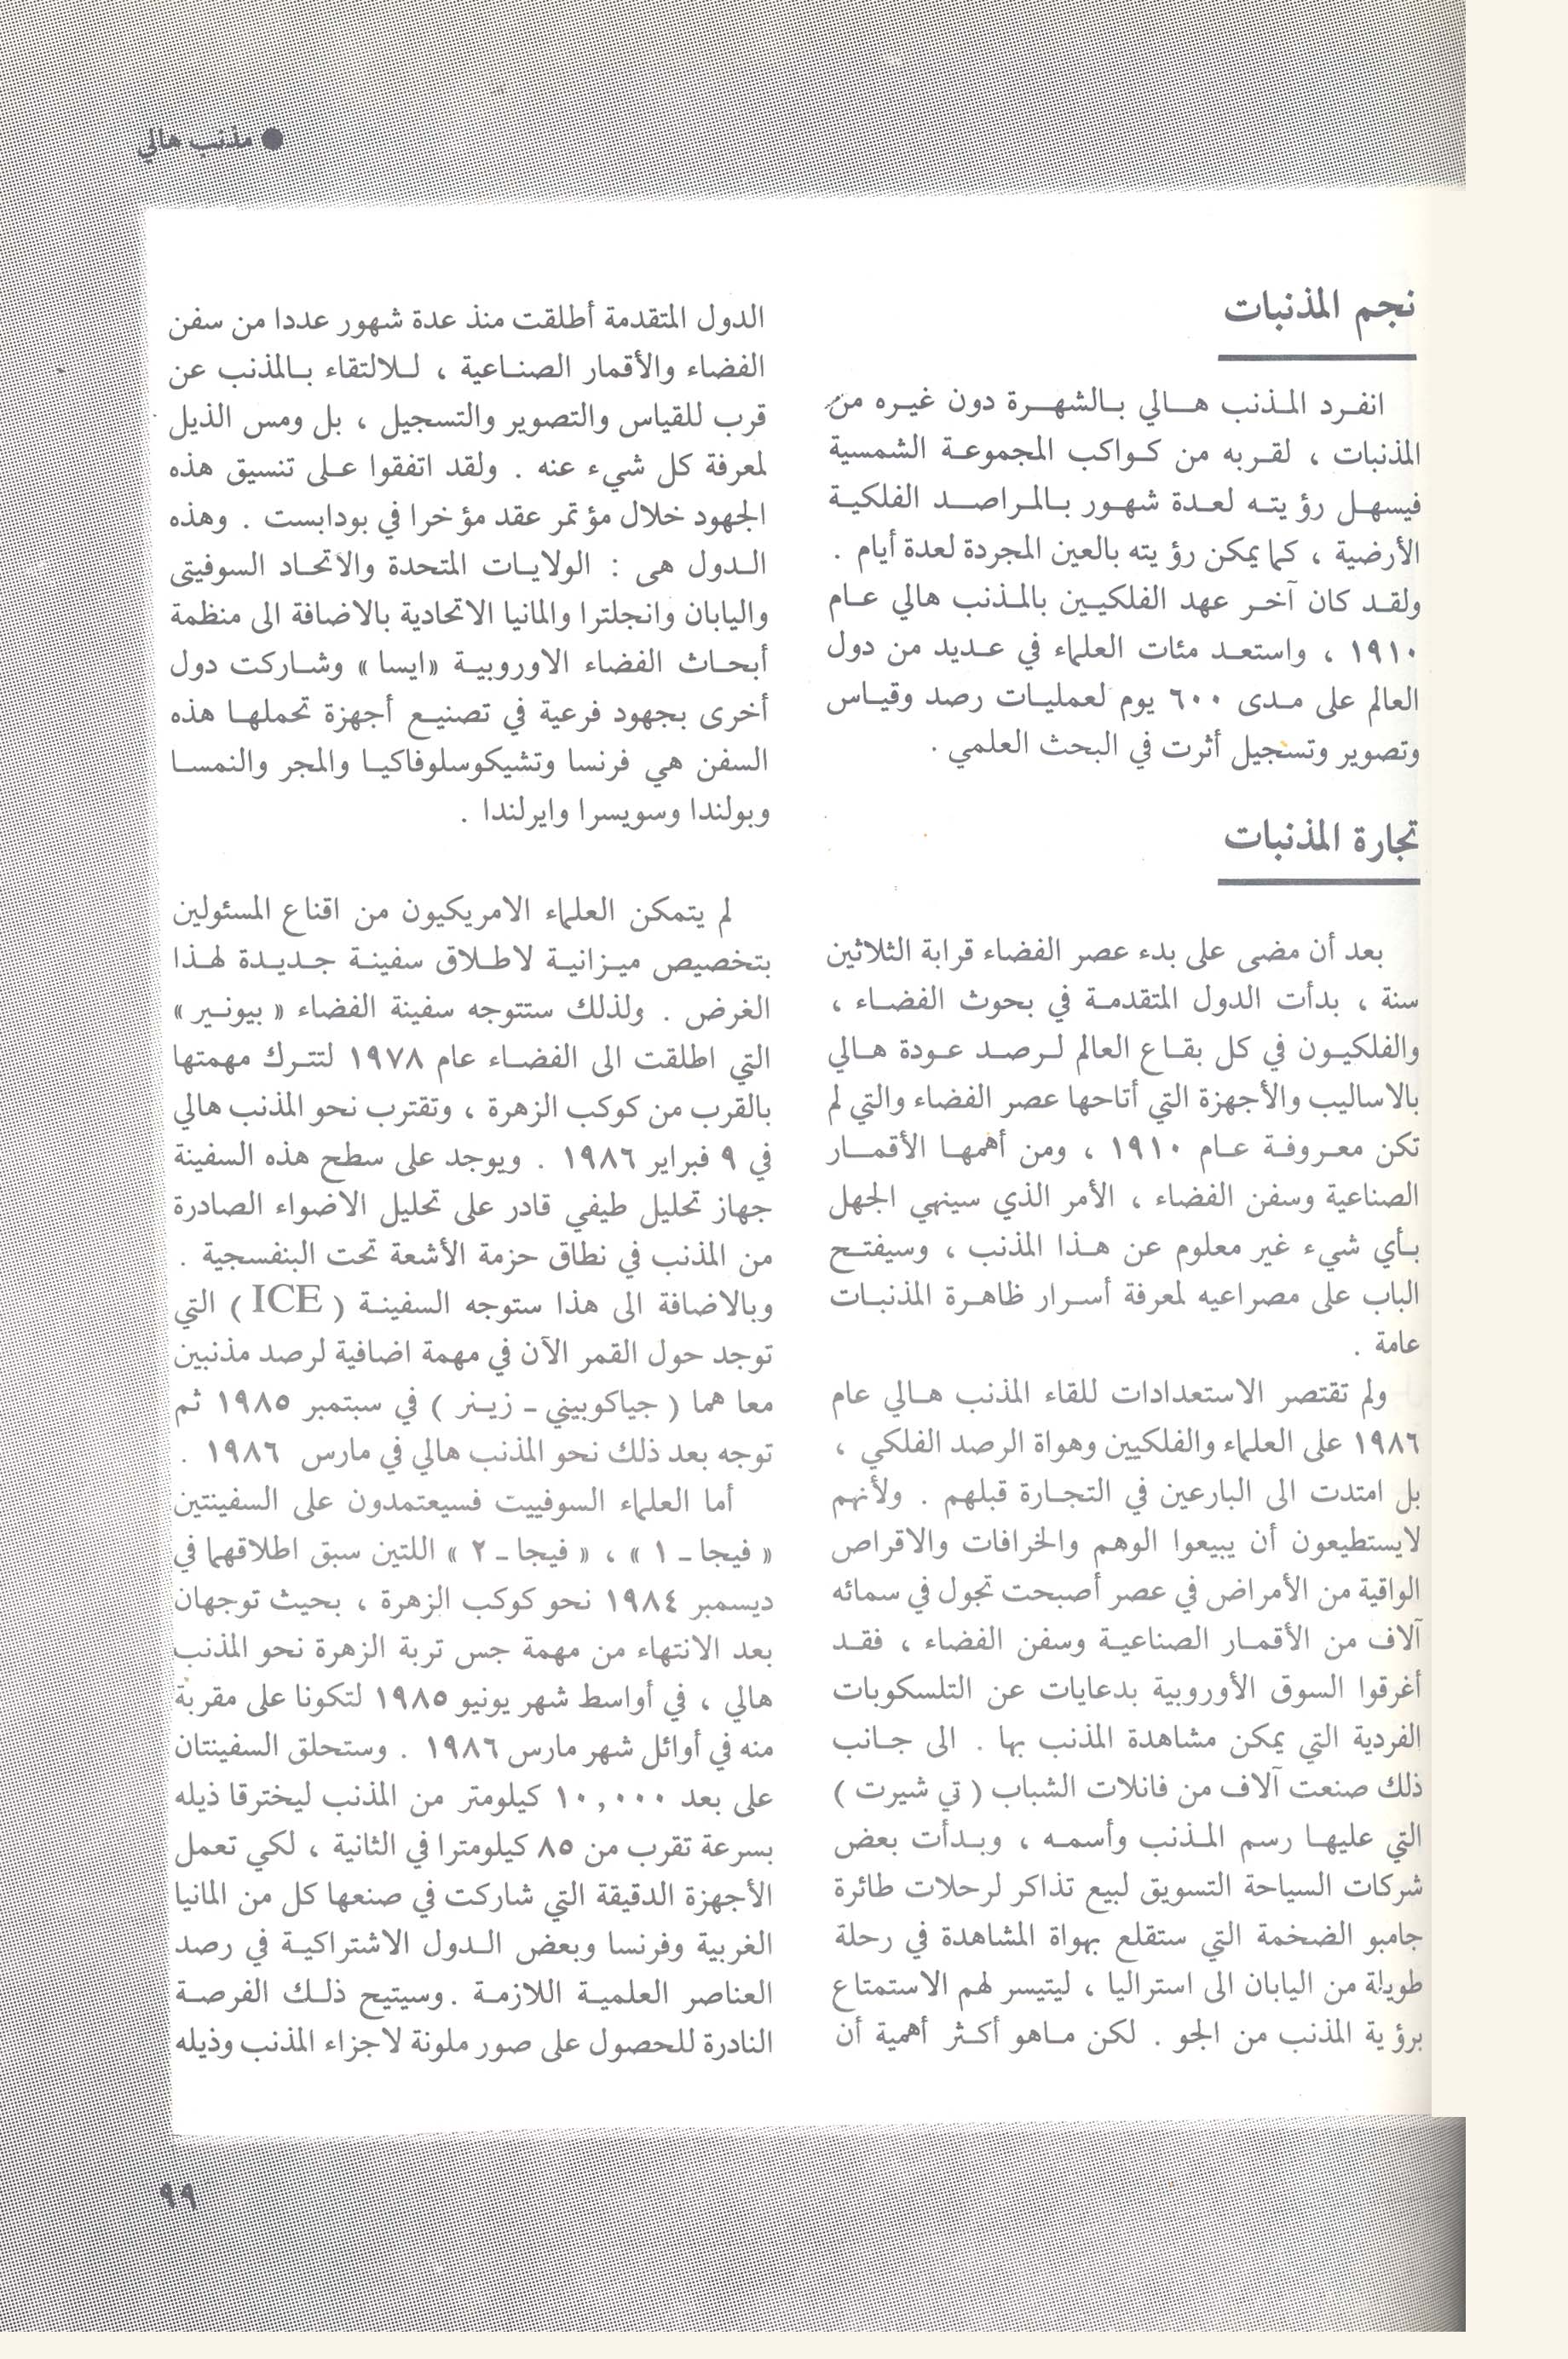 ● مذنب هالي
نجم المذنبات
انفرد المذنب هالي بالشهرة دون غيره من
المذنبات ، لقربه من كواكب المجموعة الشمسية
فيسهل رؤيته لعدة شهور بالمراصد الفلكية
الأرضية ، كما يمكن رؤيته بالعين المجردة لعدة أيام .
ولقد كان آخر عهد الفلكيين بالمذنب هالي عام
١٩١٠ ، واستعد مئات العلماء في عديد من دول
العالم على مدى ٦٠٠ يوم لعمليات رصد وقياس
وتصوير وتسجيل أثرت في البحث العلمي .
تجارة المذنبات
بعد أن مضى على بدء عصر الفضاء قرابة الثلاثين
سنة ، بدأت الدول المتقدمة في بحوث الفضاء ،
والفلكيون في كل بقاع العالم لرصد عودة هالي
بالاساليب والأجهزة التي أتاحها عصر الفضاء والتي لم
تكن معروفة عام ١٩١٠ ، ومن أهمها الأقمار
الصناعية وسفن الفضاء ، الأمر الذي سينهي الجهل
بأي شيء غير معلوم عن هذا المذنب ، وسيفتح
الباب على مصراعيه لمعرفة أسرار ظاهرة المذنبات
عامة .
ولم تقتصر الاستعدادات للقاء المذنب هالي عام
١٩٨٦ على العلماء والفلكيين وهواة الرصد الفلكي ،
بل امتدت الى البارعين في التجارة قبلهم . ولأنهم
لايستطيعون أن يبيعوا الوهم والخرافات والاقراص
الواقية من الأمراض في عصر أصبحت تجول في سمائه
آلاف من الأقمار الصناعية وسفن الفضاء ، فقد
أغرقوا السوق الأوروبية بدعايات عن التلسكوبات
الفردية التي يمكن مشاهدة المذنب بها . الى جانب
ذلك صنعت آلاف من فانلات الشباب ( تي شيرت )
التي عليها رسم المذنب وأسمه ، وبدأت بعض
شركات السياحة التسويق لبيع تذاكر لرحلات طائرة
جامبو الضخمة التي ستقلع بهواة المشاهدة في رحلة
طويلة من اليابان الى استراليا ، ليتيسر لهم الاستمتاع
برؤية المذنب من الجو . لكن ماهو أكثر أهمية أن
الدول المتقدمة أطلقت منذ عدة شهور عددا من سفن
الفضاء والأقمار الصناعية ، للالتقاء بالمذنب عن
قرب للقياس والتصوير والتسجيل ، بل ومس الذيل
لمعرفة كل شيء عنه . ولقد اتفقوا على تنسيق هذه
الجهود خلال مؤتمر عقد مؤخرا في بودابست . وهذه
الدول هى : الولايات المتحدة والاتحاد السوفيتى
واليابان وانجلترا والمانيا الاتحادية بالاضافة الى منظمة
أبحاث الفضاء الاوروبية «ايسا» وشاركت دول
أخرى بجهود فرعية في تصنيع أجهزة تحملها هذه
السفن هي فرنسا وتشيكوسلوفاكيا والمجر والنمسا
وبولندا وسويسرا وايرلندا .
لم يتمكن العلماء الامريكيون من اقناع المسئولين
بتخصيص ميزانية لاطلاق سفينة جديدة لهذا
الغرض . ولذلك ستتوجه سفينة الفضاء « بيونير »
التي اطلقت الى الفضاء عام ١٩٧٨ لتترك مهمتها
بالقرب من كوكب الزهرة ، وتقترب نحو المذنب هالي
في ٩ فبراير ١٩٨٦ . ويوجد على سطح هذه السفينة
جهاز تحليل طيفي قادر على تحليل الاضواء الصادرة
من المذنب في نطاق حزمة الأشعة تحت البنفسجية .
وبالاضافة الى هذا ستوجه السفينة ( ICE ) التي
توجد حول القمر الآن في مهمة اضافية لرصد مذنبين
معا هما ( جياكوبيني - زينر ) في سبتمبر ١٩٨٥ ثم
توجه بعد ذلك نحو المذنب هالي في مارس ١٩٨٦ .
أما العلماء السوفييت فسيعتمدون على السفينتين
« فيجا - ١ » ، « فيجا - ٢ » اللتين سبق اطلاقهما في
ديسمبر ١٩٨٤ نحو كوكب الزهرة ، بحيث توجهان
بعد الانتهاء من مهمة جس تربة الزهرة نحو المذنب
هالي ، في أواسط شهر يونيو ١٩٨٥ لتكونا على مقربة
منه في أوائل شهر مارس ١٩٨٦ . وستحلق السفينتان
على بعد ١٠,٠٠٠ كيلومتر من المذنب ليخترقا ذيله
بسرعة تقرب من ٨٥ كيلومترا في الثانية ، لكي تعمل
الأجهزة الدقيقة التي شاركت في صنعها كل من المانيا
الغربية وفرنسا وبعض الدول الاشتراكية في رصد
العناصر العلمية اللازمة . وسيتيح ذلك الفرصة
النادرة للحصول على صور ملونة لاجزاء المذنب وذيله
٩٩